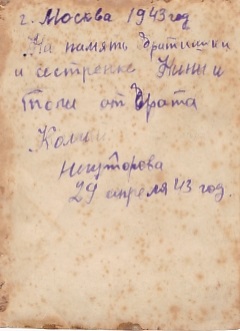 г. Москва 1943 год
На память Братишки
и сестренке Нини и
Толи от Брата
Коли
29 апреля 43 год.